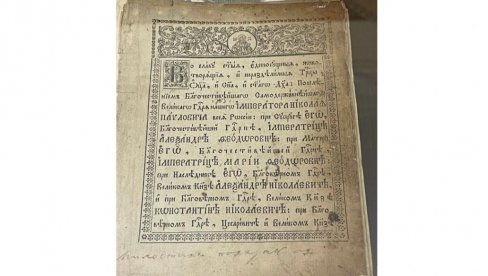 Во славу ст҃ыѧ, є҆диносущныѧ, живо-
творѧщїѧ, и҆ нераздѣлимыѧ Трⷪ҇цы,
Ѻ҆ц҃а̀, и҆ Сн҃а, и҆ ст҃агѡ Дх҃а: Повелѣ-
нїемъ Бл҃гочестивѣйшагѡ Самодержавнѣйшагѡ
Великагѡ Гдⷭ҇рѧ нашегѡ И҆МПЕРАТОРА НЇКОЛАѦ
ПАѴЛОВИЧА всеѧ̀ Рѡссїи: при Сꙋпрꙋгѣ Є҆ГѠ̀,
Бл҃гочестивѣйшей Гдⷭ҇рнѣ, И҆МПЕРАТРИЦѢ
А҆ЛЕѮАНДРѢ ѲЕОДѠРОВНѢ: при Мт҃ри
Є҆ГѠ̀, Бл҃гочестивѣйшей Гдⷭ҇рнѣ,
И҆МПЕРАТРИЦѢ МАРІИ ѲЕОДѠРОВНѢ:
при Наслѣдникѣ Є҆ГѠ̀, Бл҃говѣрномъ Гдⷭ҇рѣ,
Великомъ Кнѧ҃зѣ А҆ЛЕѮАНДРѢ НЇКОЛАЕВИЧѢ,
и҆ при Бл҃говѣрномъ Гдⷭ҇рѣ, Великомъ Кнѧ҃зѣ
КѠНСТАНТІНѢ НЇКОЛАЕВИЧѢ: при Бл҃го-
вѣрномъ Гдⷭ҇рѣ, Цесаревичѣ и҆ Великомъ Кнѧ҃зѣ